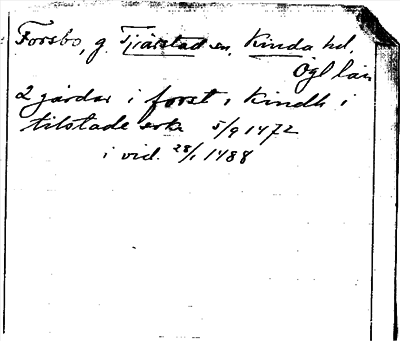 Forsbo, g. Tjärstad sn, Kinda hd,
Ögl län
2 gårdar i forst, Kindh i
tilstade sokn 5/9 1472
i vid. 28/1 1488